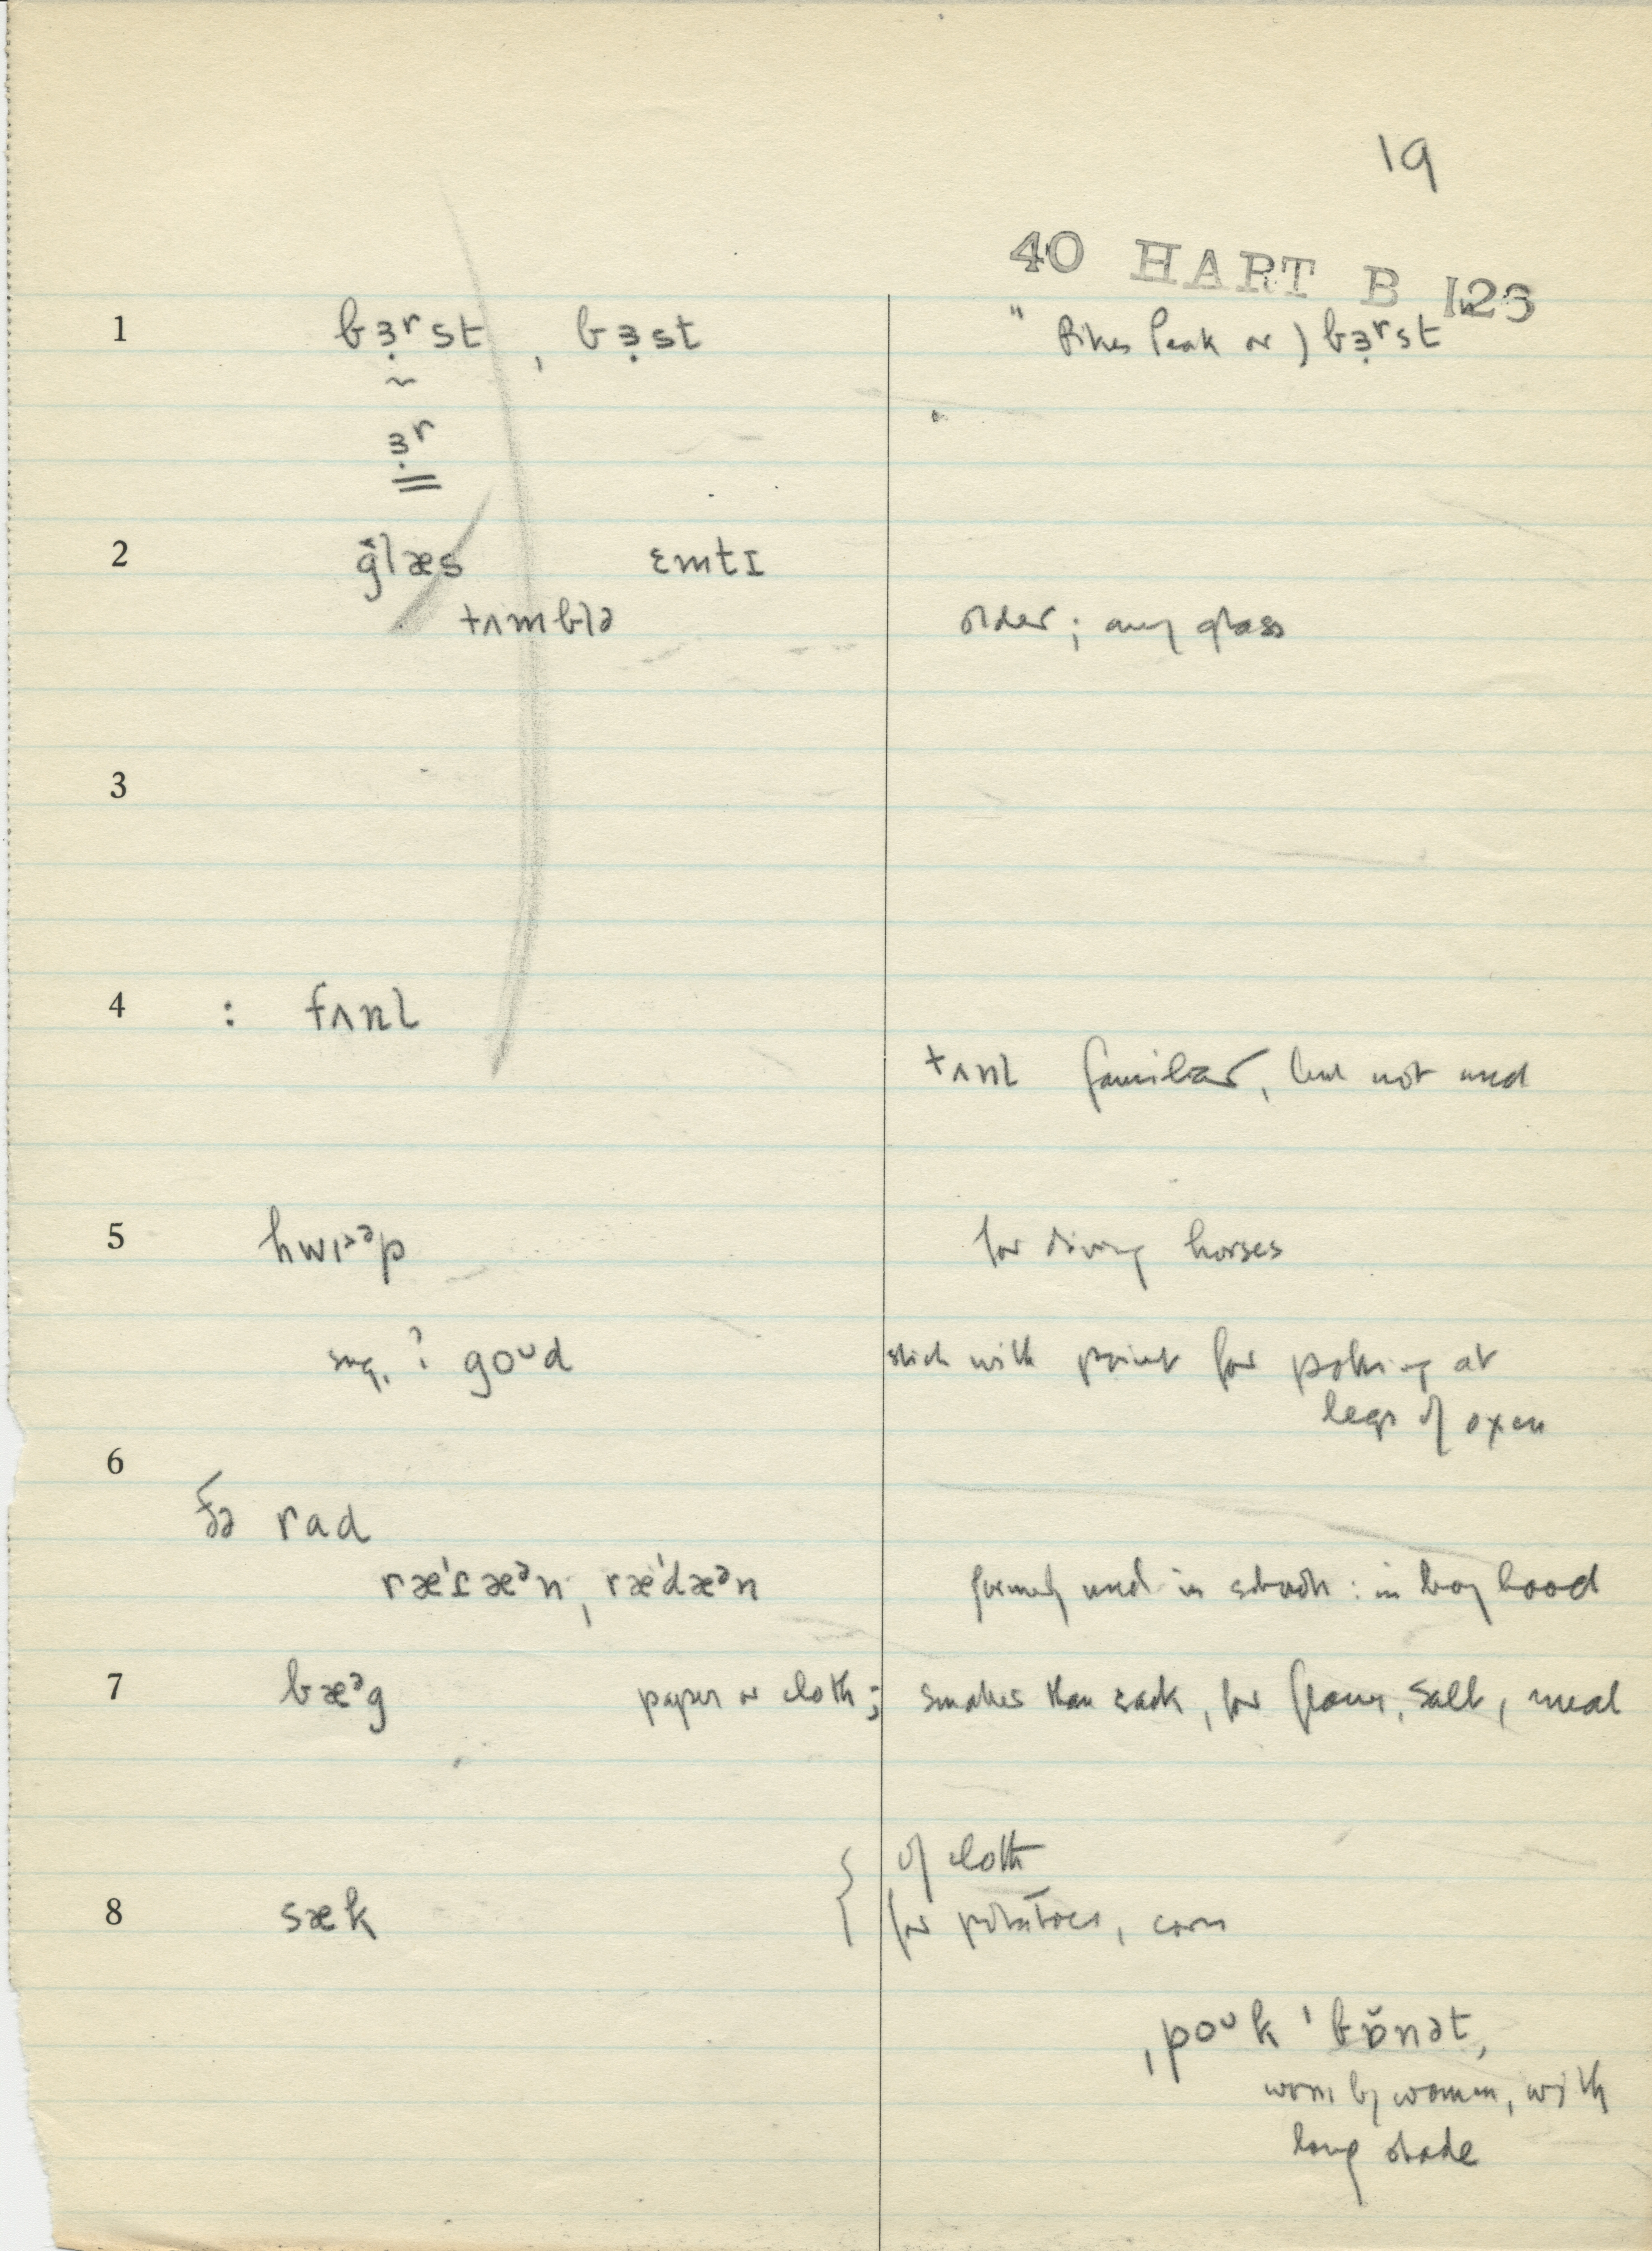 19
40 HART B 123
1 bɜ̣ʳst , bɜ̣st " Pikes Peak or ) bɜ̣ʳst
~
ɜ̣ʳ
2 ɡ̌læs ɛmtɪ
tʌmblə older ; any glass
3
4 : fʌnl
tʌnl familiar, but not used
5 hwɪ˃ᵊp for driving horses
sug. ? goᵘd stick with point for poking at
legs of oxen
6
ðə rad
ræ'ɾæᵊn , ræ'dæᵊn formerly used in school : in boyhood
7 bæᵊg paper or cloth ; smaller than sack, for flour, salt, meal
{ of cloth
8 sæk for potatoes, corn
ˌpoᵘk ˈbɒ̌nət,
worn by women, with
long shade